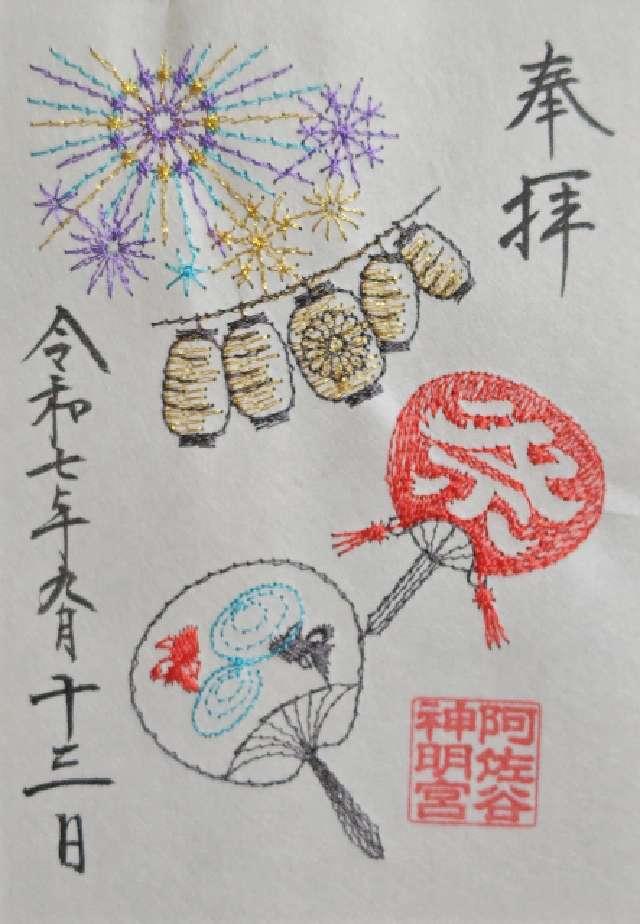 奉拝
祭
阿佐谷
神明宮
令和七年九月十三日